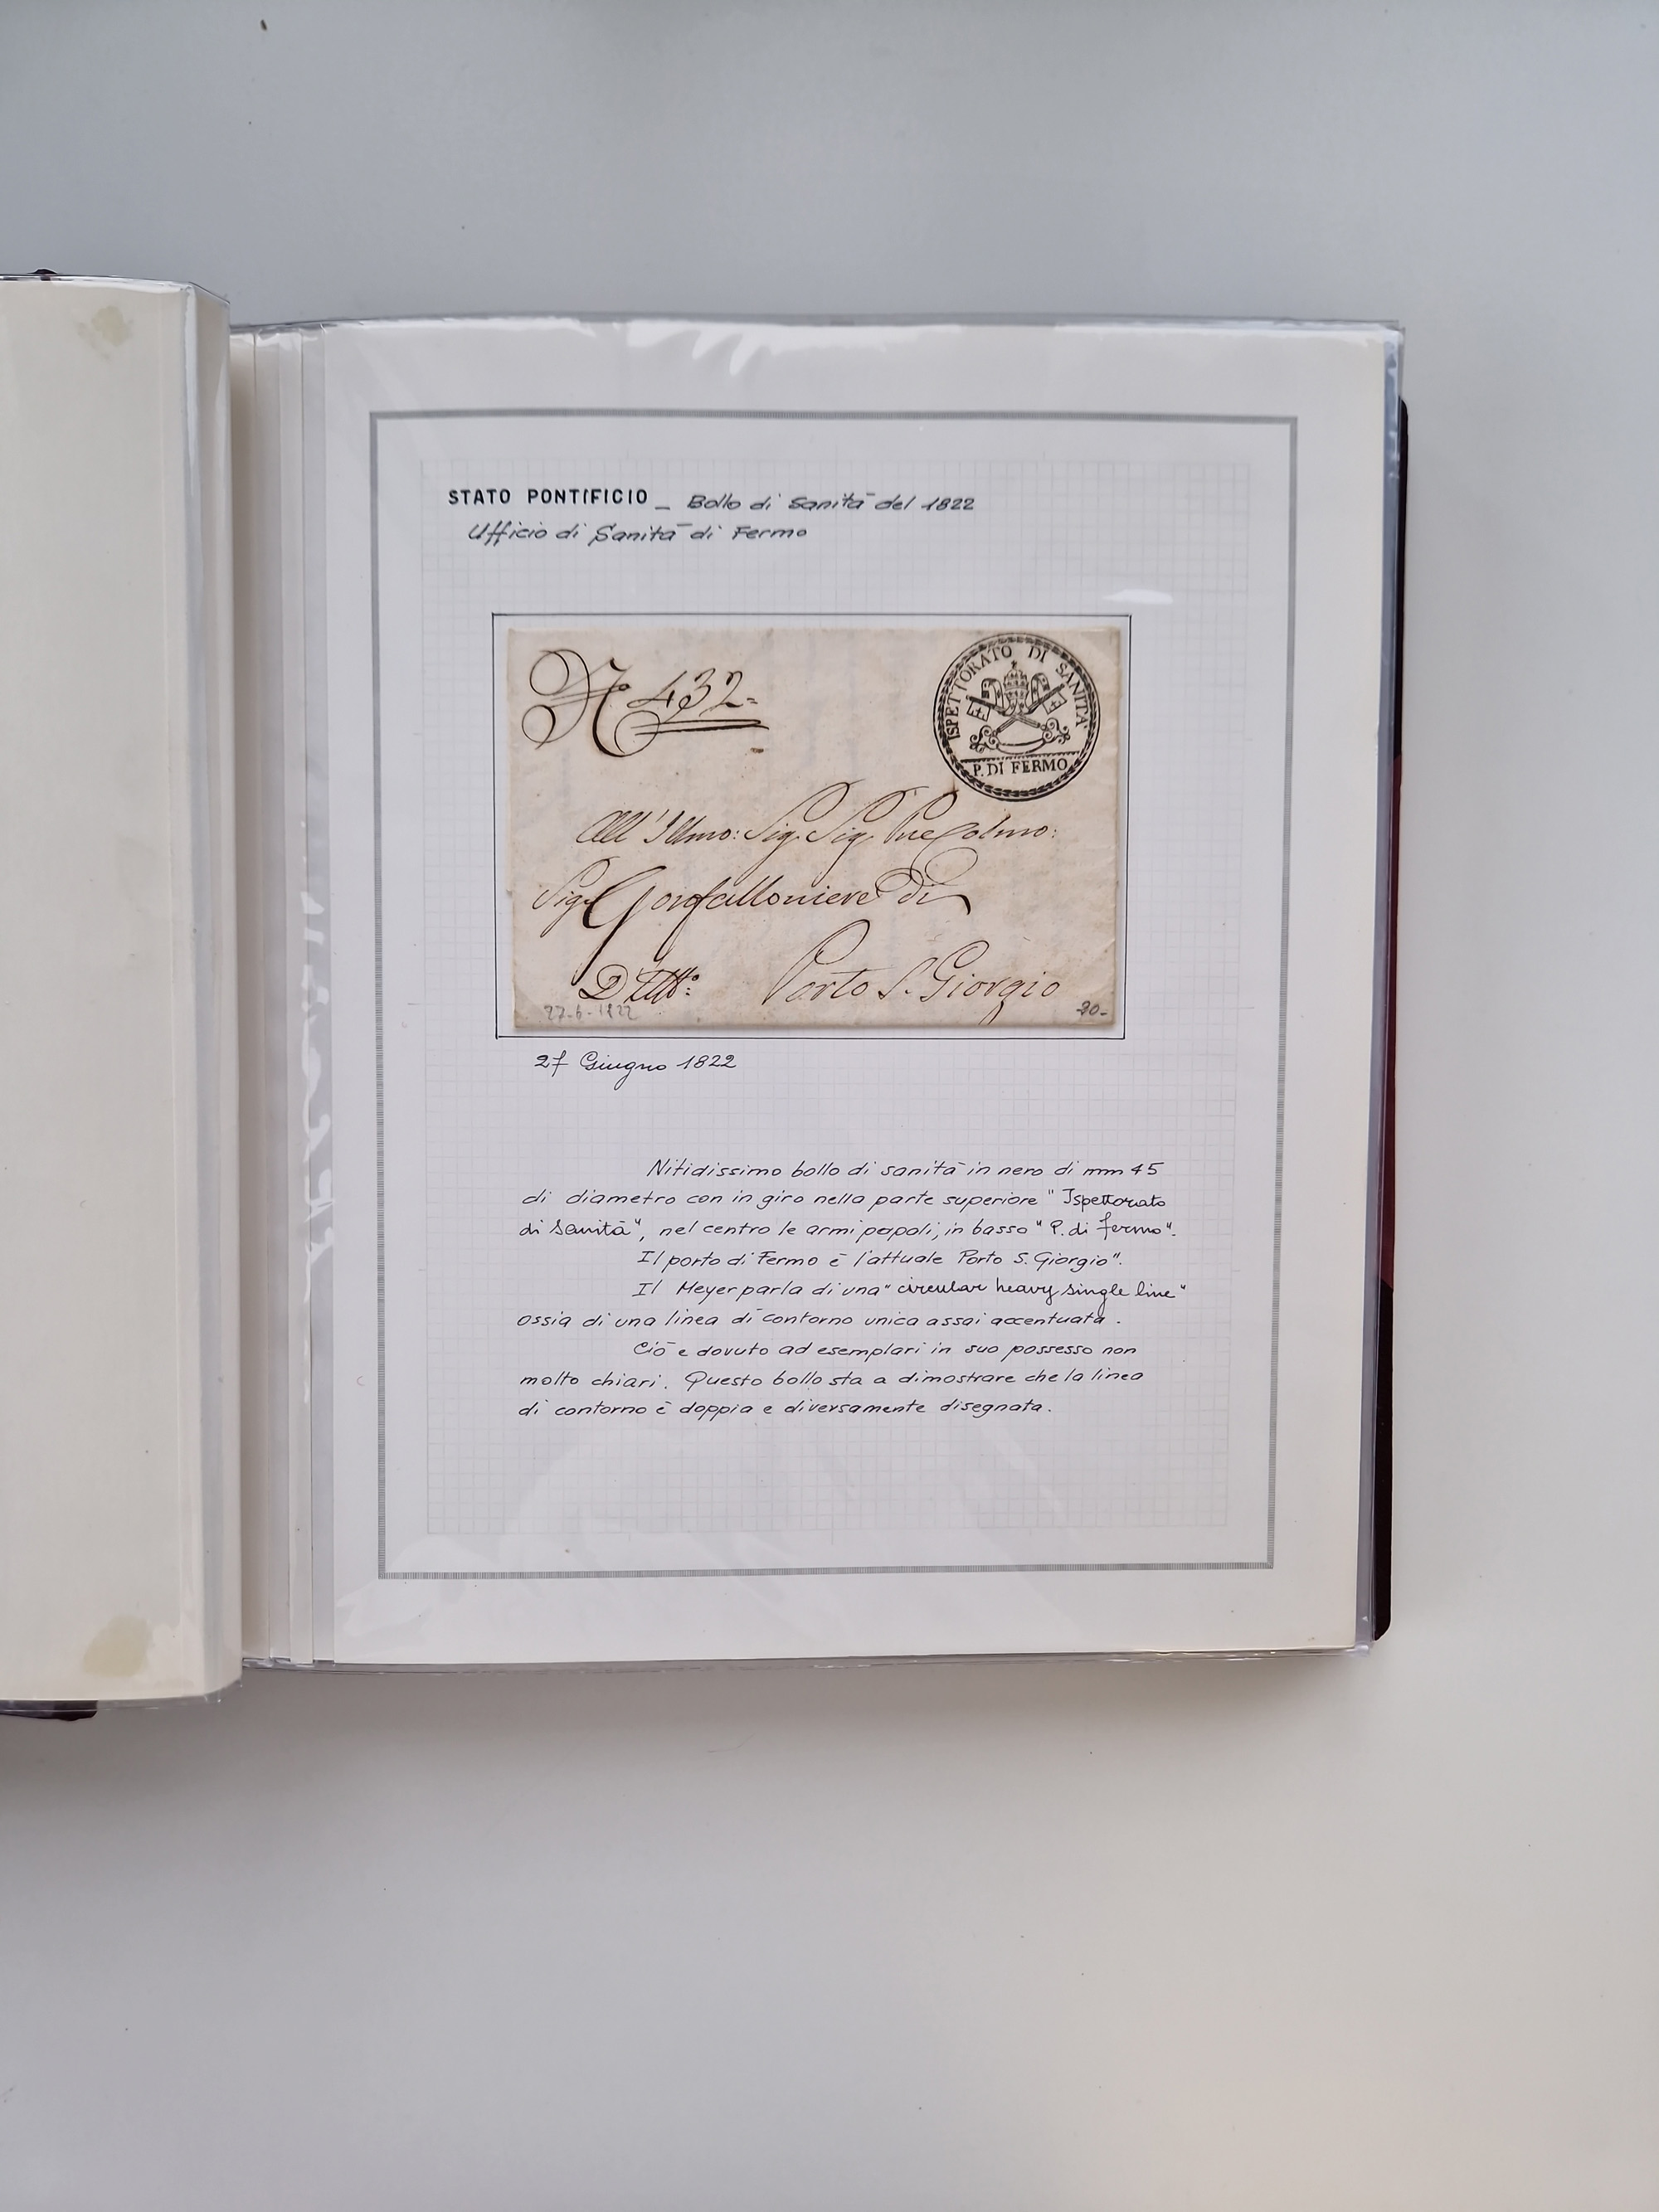 STATO PONTIFICIO _ Bollo di Sanità del 1822
Ufficio di Sanità di Fermo
N° 432=
ISPETTORATO DI SANITA'
P. DI FERMO
All' Illmo: Sig. Sig. Pne Colmo:
Sig. Gonfalloniere Di
Porto S. Giorgio
27-6-1822
20-
27 Giugno 1822
Nitidissimo bollo di sanità in nero di mm 45
di diametro con in giro nella parte superiore "Ispettorato
di Sanità", nel centro le armi papali, in basso "P. di fermo".
Il porto di Fermo è l'attuale Porto S. Giorgio".
Il Meyer parla di una "circular heavy single line"
ossia di una linea di contorno unica assai accentuata.
Ciò e dovuto ad esemplari in suo possesso non
molto chiari. Questo bollo sta a dimostrare che la linea
di contorno è doppia e diversamente disegnata.